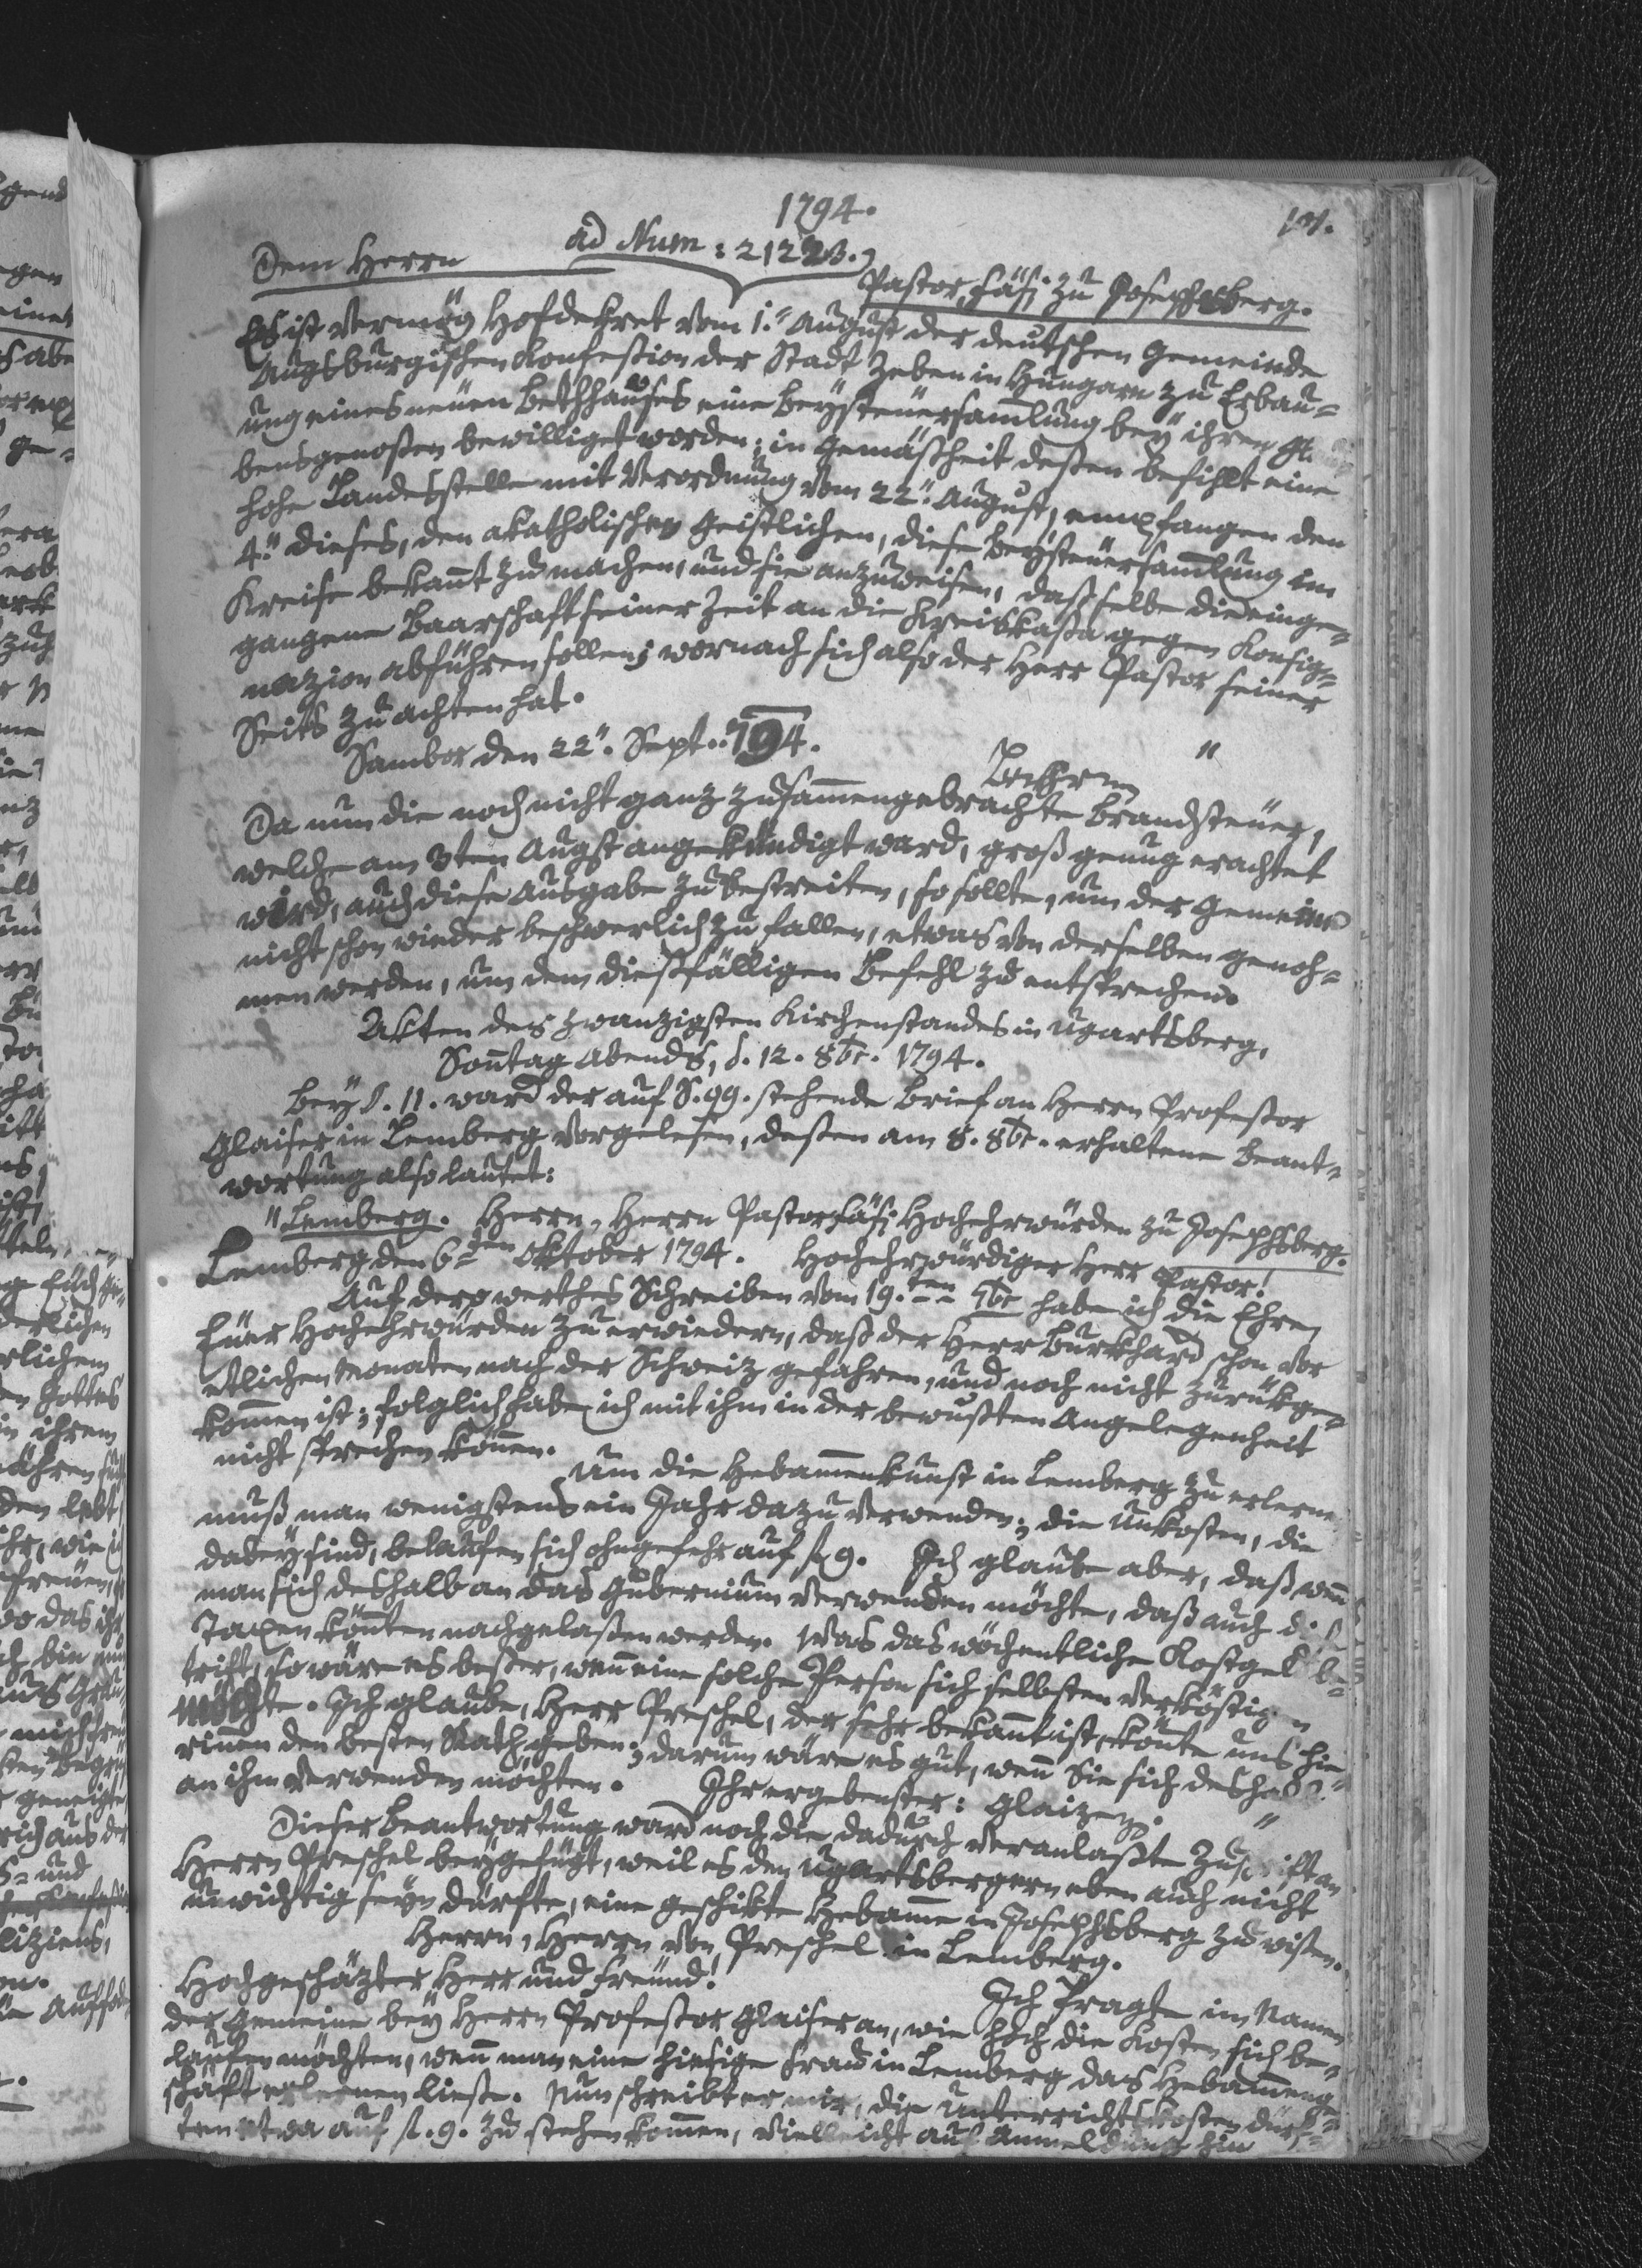 1794.
101.
ad Num: 21223.
Dem Herrn Pastor Fäsi zu Josephsberg.
Es ist vermög Hofdekret vom 1.n August der deutschen Gemeinde
Augsburgischen Konfeßion der Stadt Zeben in Hungarn zu Erbau=
ung eines neuen Bethhaußes eine Beysteuersamlung bey ihren
bensgenoßen bewilliget worden; in Gemäßheit deßen befihlt eine
hohe Landesstelle mit Verordnung vom 22.n August, empfangen den
4.n dieses, den akatholischen Geistlichen, diese Beysteuersamlung im
Kreise bekant zu machen, und sie anzuweisen, daß selbe die einge=
gangene Baarschaft seiner Zeit an die Kreiskaßa gegen Konsig=
nazion abführen sollen; wornach sich also der Herr Pastor seiner
Seits zu achten hat.
Sambor den 22.n Sept. 794.
"
Da nun die noch nicht ganz zusamengebrachte Brandsteuer,
welche am 3ten Augst angekündigt ward, groß genug erachtet
wird, auch diese Ausgabe zu bestreiten, so sollte, um der Gemeine
nicht schon wieder beschwerlich zu fallen, etwas von derselben genoh=
men werden, um dem dießfälligen Befehl zu entsprechen.
Akten des zwanzigsten Kirchenstandes in Ugartsberg,
Sontag Abends, d. 12. 8br. 1794.
Bey §. 11. ward der auf S. 99. stehende Brief an Herrn Profeßor
Glaiser in Lemberg vorgelesen, deßen am 8. 8br. erhaltene Beant=
wortung also lautet:
"Lemberg. Herrn, Herrn Pastor Fäsi Hochehrwürden zu Josephsberg.
Lemberg den 6ten Oktober 1794. Hochehrwürdiger Herr Pastor!
Auf dero werthes Schreiben vom 19.ten 7br habe ich die Ehre
Euer Hochehrwürden zu erwiedern, daß der Herr Burkhard schon vor
etlichen Monaten nach der Schweiz gefahren, und noch nicht zurükge=
komen ist; folglich habe ich mit ihm in der bewußten Angelegenheit
nicht sprechen könen.
Um die Hebamenkunst in Lemberg zu erlerne
muß man wenigstens ein Jahr dazu verwenden; die Unkosten, die
dabey sind, belaufen sich ohngefehr auf fl 9. Ich glaube aber, daß wenn
man sich deshalb an das Gubernium verwenden möchte, daß auch
Taxen könten nachgelaßen werden. Was das wöchentliche Kostgeld be=
trift, so wäre es beßer, wenn eine solche Person sich selbsten verköstigen
möchte. Ich glaube, Herr Preschel, der sehr bekant ist, könte uns hie=
rinnen den besten Rath geben; darum wäre es gut, wenn Sie sich deshalb
an ihm verwenden möchten. Ihr ergebenster: Glaizer. "
Dieser Beantwortung ward noch die dadurch veranlaßte Zuschrift an
Herrn Preschel beygefügt, weil es den Ugartsbergern eben auch nicht
unwichtig seyn dürfte, eine geschikte Hebame in Josephsberg zu wißen.
Herrn, Herrn von Preschel in Lemberg.
Hochgeschäzter Herr und Freund!
Ich fragte im Namen
der Gemeine bey Herrn Profeßor Glaiser an, wie hoch die Kosten sich be=
laufen möchten, wenn man eine hiesige Frau in Lemberg das Hebameng
schäft erlernen ließe. Nun schreibt er mir, die Unterrichtskosten dürf=
ten etwa auf fl. 9. zu stehen komen, vielleicht auf Anmeldung hin